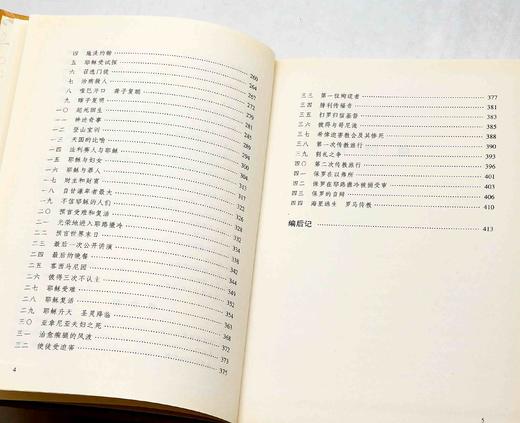 四 施洗约翰 260
五 耶稣受试探 264
六 召选门徒 267
七 治病救人
八 哑巴开口 聋子复聪
九 瞎子复明
一〇 起死回生
一一 神迹奇事
一二 登山宝训
一三 天国的比喻
一四 法利赛人与耶稣
一五 耶稣与妇女
一六 耶稣与罪人
一七 财主和财富
一八 自甘谦卑者最大
一九 不信耶稣的人们
二〇 预言受难和复活
二一 光荣地进入耶路撒冷
二二 预言世界末日
二三 最后一次公开讲演
二四 最后的晚餐
二五 客西马尼园
二六 彼得三次不认主
二七 耶稣受难
二八 耶稣复活
二九 耶稣升天 圣灵降临
三〇 亚拿尼亚夫妇之死
三一 治愈瘸腿的风波 373
三二 使徒受迫害 375
4
三三 第一位殉道者 377
三四 腓利传福音 381
三五 扫罗归信基督 383
三六 彼得与哥尼流 385
三七 希律迫害教会及其惨死
三八 第一次传教旅行 390
三九 割礼之争
四〇 第二次传教旅行 396
四一 保罗在以弗所 401
四二 保罗在耶路撒冷被捕受审 403
四三 保罗的自辩 406
四四 海里逃生 罗马传教 410
编后记 413
5